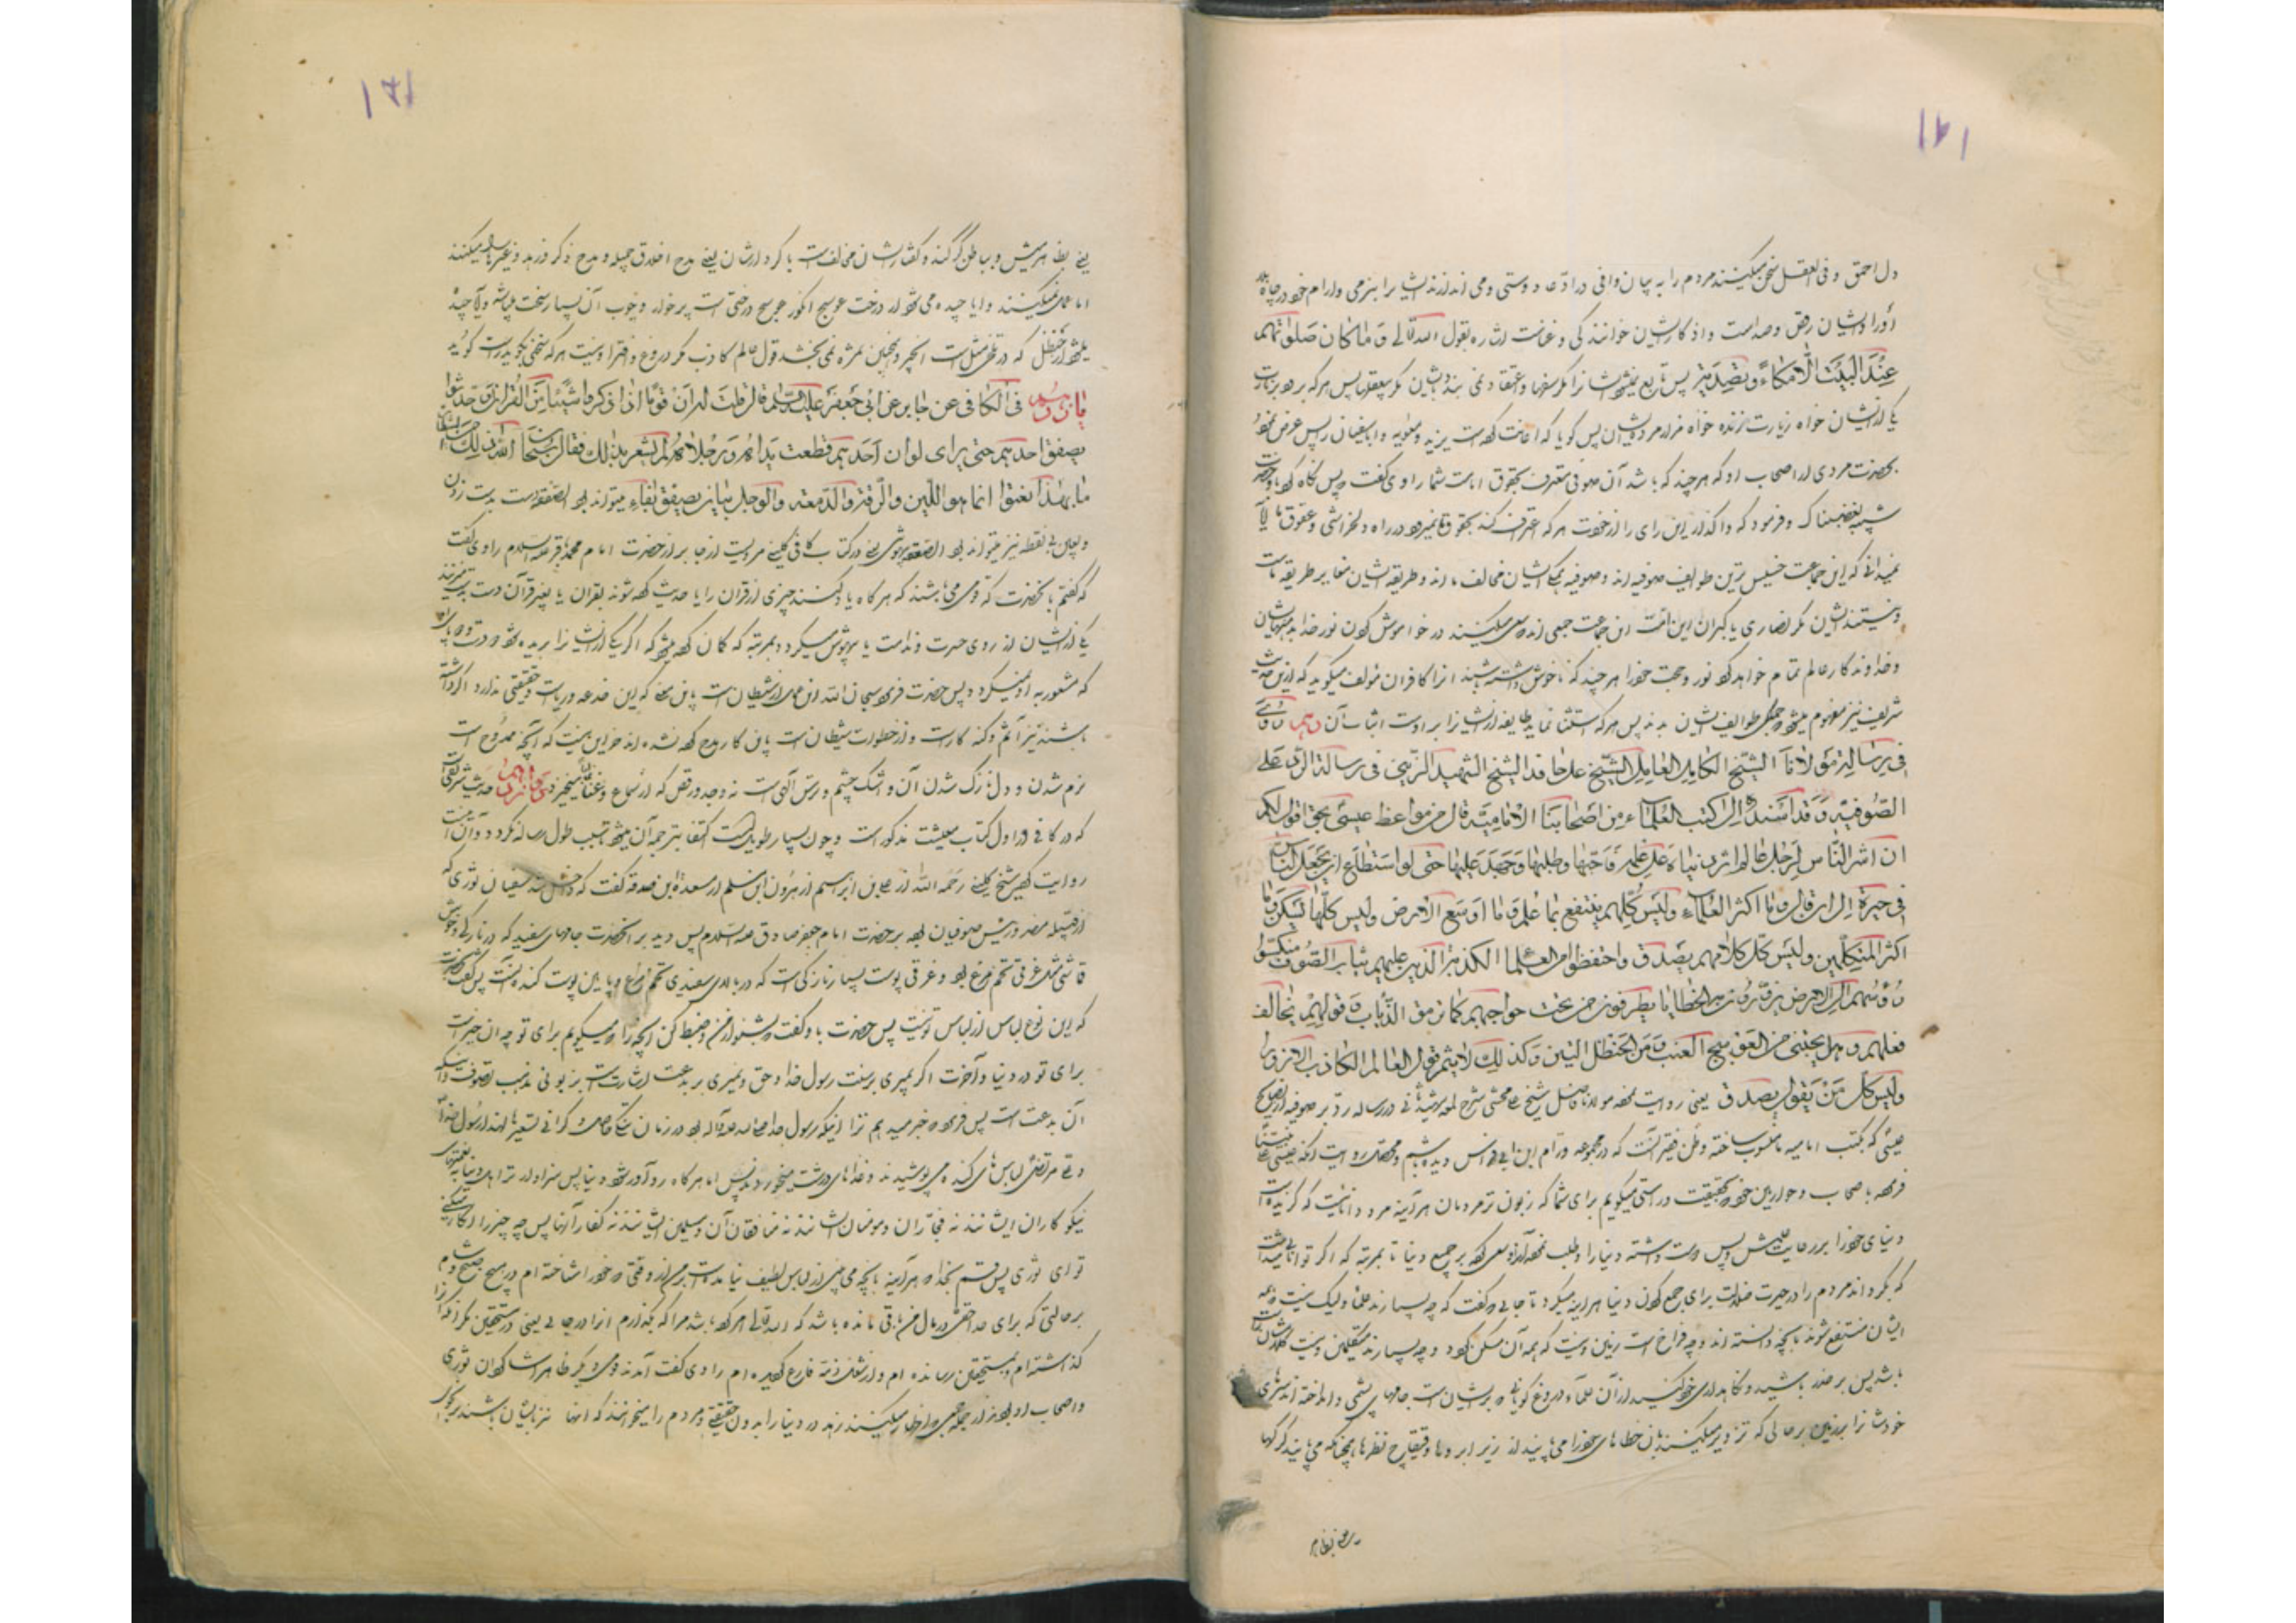 ۱۲۱
دل احمق و فی العقل سخن میکنند مردم را به بیان وافی در ادعاء دوستی و می اندازند ایشانرا بنرمی و ارام خود در چاه
اوراد ایشان رقص و صداست و اذکار ایشان خوانندگی و غناست اشاره بقول الله تعالی وَ مٰا کٰانَ صَلٰوتُهُم
عِنْدَ الْبَیْتِ اِلّٰا مُکٰاءً وَ تَصْدِیَةً پس تابع نمیشود ایشانرا مگر سفها و اعتقاد نمی بندد بایشان مگر بیعقلها پس هرکه برود بزیارت
یکی از ایشان خواه زیارت زنده خواه مزار مرده ایشان پس گویا که اعانت کرده است یزید و معویه و ابا سفیان را پس عرض نمود
بحضرت مردی از اصحاب او که هر چند که باشد آن صوفی معترف بحقوق امامت شما راوی گفت پس نگاه کرد باو حضرت
شبیه بغضبناک و فرمود که واگذار این رای را از خود هر که اعتراف کند بحقوق ما نمیرود در راه دلخراشی و عقوق ما آیا
نمیدانی که این جماعت خسیس ترین طوایف صوفیه اند و صوفیه همگی ایشان مخالف ما اند و طریقه ایشان مغایر طریقه ماست
و نیستند ایشان مگر نصاری یا گبران این امت این جماعت جمعی اند که سعی میکنند در خواموش کردن نور خدا بدهنهایشان
و خداوندکار عالم تمام خواهد کرد نور و حجت خود را هر چند که ناخوش داشته باشند انرا کافران مولف میگوید که از این حدیث
شریف نیز مفهوم میشود جمیع طوایف ایشان بدند پس هر که استثنا نماید طایفه از ایشانرا بر اوست اثبات آن
فی رسالة مولانا الشیخ الکامل العامل الشیخ علی حافد الشیخ الشهید الزینی فی رسالة الرد علی
الصوفیة و قد اسنده الی کتب العلماء من اصحابنا الامامیة قال من مواعظ عیسی بحق اقول لکم
ان اشر الناس لرجل عالم اثر دنیاه علی علمه فاحبها و طلبها و جهد علیها حتی لو استطاع ان یجعل الناس
فی حیرة الی ان قال و ما اکثر العلماء و لیس کلهم ینتفع بما علم و ما اوسع الارض و لیس کلها تسکن و ما
اکثر المتکلمین و لیس کل کلامهم یصدق و احتفظوا من العلماء الکذبة الذین علیهم ثیاب الصوف منکسوا
رؤسهم الی الارض یزورون به الخطایا یطرفون من تحت حواجبهم کما ترمق الذئاب و قولهم یخالف
فعلهم و هل یجتنی من العوسج العنب و من الحنظل التین و کذلک لا یثمر قول العالم الکاذب الا زورا
و لیس کل من یقول یصدق یعنی روایت نموده مولانا فاضل شیخ علی محشی شرح لمعه در رساله رد بر صوفیه از
عیسی که بکتب امامیه منسوب ساخته و ظن فقیر آنست که در مجموعه ورام ابن ابی فراس دیده باشم
فرمود باصحاب و حواریین خود بحقیقت و راستی میگویم برای شما که زبون تر مردمان هر آینه مرد دانائیست که گزیده است
دنیای خود را بر علمش پس دوست داشته دنیا را و طلب نموده آنرا و سعی کرده بر جمع دنیا تا بمرتبه که اگر توانائی میداشت
که بگرداند مردم را در حیرت و ضلالت برای جمع کردن دنیا هر اینه میکرد تا جائی که گفت که چه بسیارند علما و لیک نیست همه
ایشان منتفع شوند بآنچه دانسته اند و چه فراخ است زمین و نیست که همه آن مسکن گردد و چه بسیارند متکلمین و نیست
باشد پس بر حذر باشید و نگاهداری خود کنید از آن علماء دروغ گویانی که بر ایشانست جامهای پشمی و انداخته اند سرهای
خودشانرا بر زمین بر حالی که تزویر میکنند بان خطاهای خود را می پایند از زیر ابروها همچنانکه می پایند گرگها
یعنی بظاهر
۱۲۱
یعنی بظاهر میش و بباطن گرگند و گفتار ایشان مخالف است با کردار ایشان یعنی مدح اخلاق جمیله و مدح ذکر و زهد و غیر اینها میکنند
اما عمل نمیکنند و ایا چیده می شود از درخت عوسج انگور عوسج درختی است پر خار و خوب آن بسیار سخت میباشد و آیا چیده
میشود از حنظل که در تلخی مثل است انجیر و همچنین ثمره نمی بخشد قول عالم کاذب مگر دروغ و افترا و نیست هر که سخنی بگوید راست گوید
فی الکافی عن جابر عن ابی جعفر علیه السلام قال قلت له ان قوما اذا ذکروا شیئا من القران او حدثوا
یصفق احدهم حتی یری لو ان احدهم قطعت یداه و رجلاه لم یشعر بذلک فقال سبحان الله ذلک من الشیطان
ما بهذا نعتوا انما هو اللین و الرقة و الدمعة و الوجل بیان یصفق بفاء میتواند بود الصفق دست بدست زدن
و بعین بی نقطه نیز میتواند بود الصعق بیهوشی یعنی در کتاب کافی کلینی مرویست از جابر از حضرت امام محمد باقر علیه السلام راوی گفت
که گفتم بانحضرت که قومی می باشند که هر گاه یاد کنند چیزی از قران را یا حدیث کرده شوند بقران یا بغیر قرآن دست بر دست میزنند
یکی از ایشان از روی حسرت و ندامت یا بیهوش میگردد بمرتبه که گمان کرده میشود که اگر یکی از ایشانرا بریده شود دست و پای او
که مشعور به او نمیگردد پس حضرت فرمود سبحان الله این عمل از شیطان است باین معنی که این خدعه و ریاست و حقیقتی ندارد و اگر داشته
باشند نیز آثم و گنه کارست و از خطوات شیطان است باین کار مدح کرده نشده اند جز این نیست که آنچه ممدوح است
نرم شدن و دل نازک شدن آن و اشک چشم و ترس آلهی است نه وجد و رقص که از سماع و غنا میخیزد حدیث شریفی است
که در کافی در اول کتاب معیشت مذکور است و چون بسیار طویل است اکتفا بترجمه آن میشود تا سبب طول رساله نگردد و آن اینست
روایت کرده شیخ کلینی رحمه الله از علی بن ابراهیم از هرون ابن مسلم از مسعدة ابن صدقه گفت که داخل شد سفیان ثوری که
از قبیله مضر و رئیس صوفیان بود بر حضرت امام جعفر صادق علیه السلام پس دید بر آنحضرت جامهای سفید که در نازکی و خوش
قماشی مثل غرقی تخم مرغ بود و غرقی پوست بسیار نازکی است که در بالای سفیدی تخم مرغ و پایین پوست گنده آنست پس گفت
که این نوع لباس از لباس تو نیست پس حضرت باو گفت بشنو از من و ضبط کن آنچه را که میگویم برای تو چه ان خیر است
برای تو در دنیا و آخرت اگر بمیری بر سنت رسول خدا و حق و نمیری بر بدعت اشارتست بزبونی مذهب تصوف و آنکه
آن بدعت است پس فرمود که خبر میدهم ترا اینکه رسول خدا صلی الله علیه و آله بود در زمان تنگ
و علی مرتضی لباس های گنده می پوشیدند و غذاهای درشت میخوردند پس اما هر گاه رو آورد شود دنیا پس سزاوارتر اهل دنیا بنعمتهای
نیکوکاران ایشانند نه فجاران و مومنان ایشانند نه منافقان آن و مسلمین ایشانند نه کفار آنها پس چه چیز را انکار میکنی
تو ای ثوری پس قسم بخدا که هر آینه بآنچه می بینی از لباس لطیف نیامده است بر من از وقتی که خود را شناخته ام در هیچ صبح و شام
بر حالتی که برای خدا حقی در مال من باقی مانده باشد که الله تعالی امر کرده باشد مرا که بگذارم انرا در جائی یعنی در مستحقین مگر انکه
گذاشته ام و بمستحقین رسانده ام و از شغل ذمه فارغ گردیده ام راوی گفت آمدند قومی دیگر ظاهر است که از اعوان ثوری
و اصحاب او بودند از جمله جمعی که اظهار میکنند زهد در دنیا را بدون حقیقت و مردم را میخوانند که انها نیز با ایشان باشند